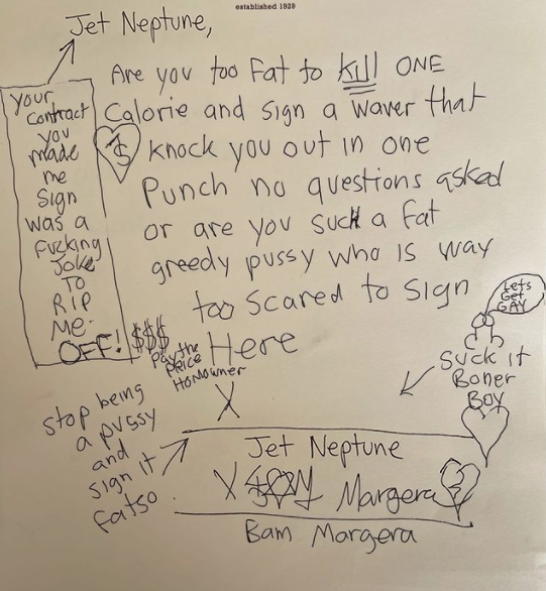 established 1829
Jet Neptune,
Are you too Fat to kill ONE
Calorie and sign a waver that
$ knock you out in one
Punch no questions asked
or are you such a fat
greedy pussy who is way
too scared to sign
Here
your
contract
you
made
me
Sign
was a
Fucking
Joke
TO
RIP
ME.
OFF!
$$$
Pay the
Price
HOMOwner
Lets
Get
GAY
Suck it
Boner
Boy
stop being
a pussy
and
sign it
fatso
X
Jet Neptune
X Margera
Bam Margera